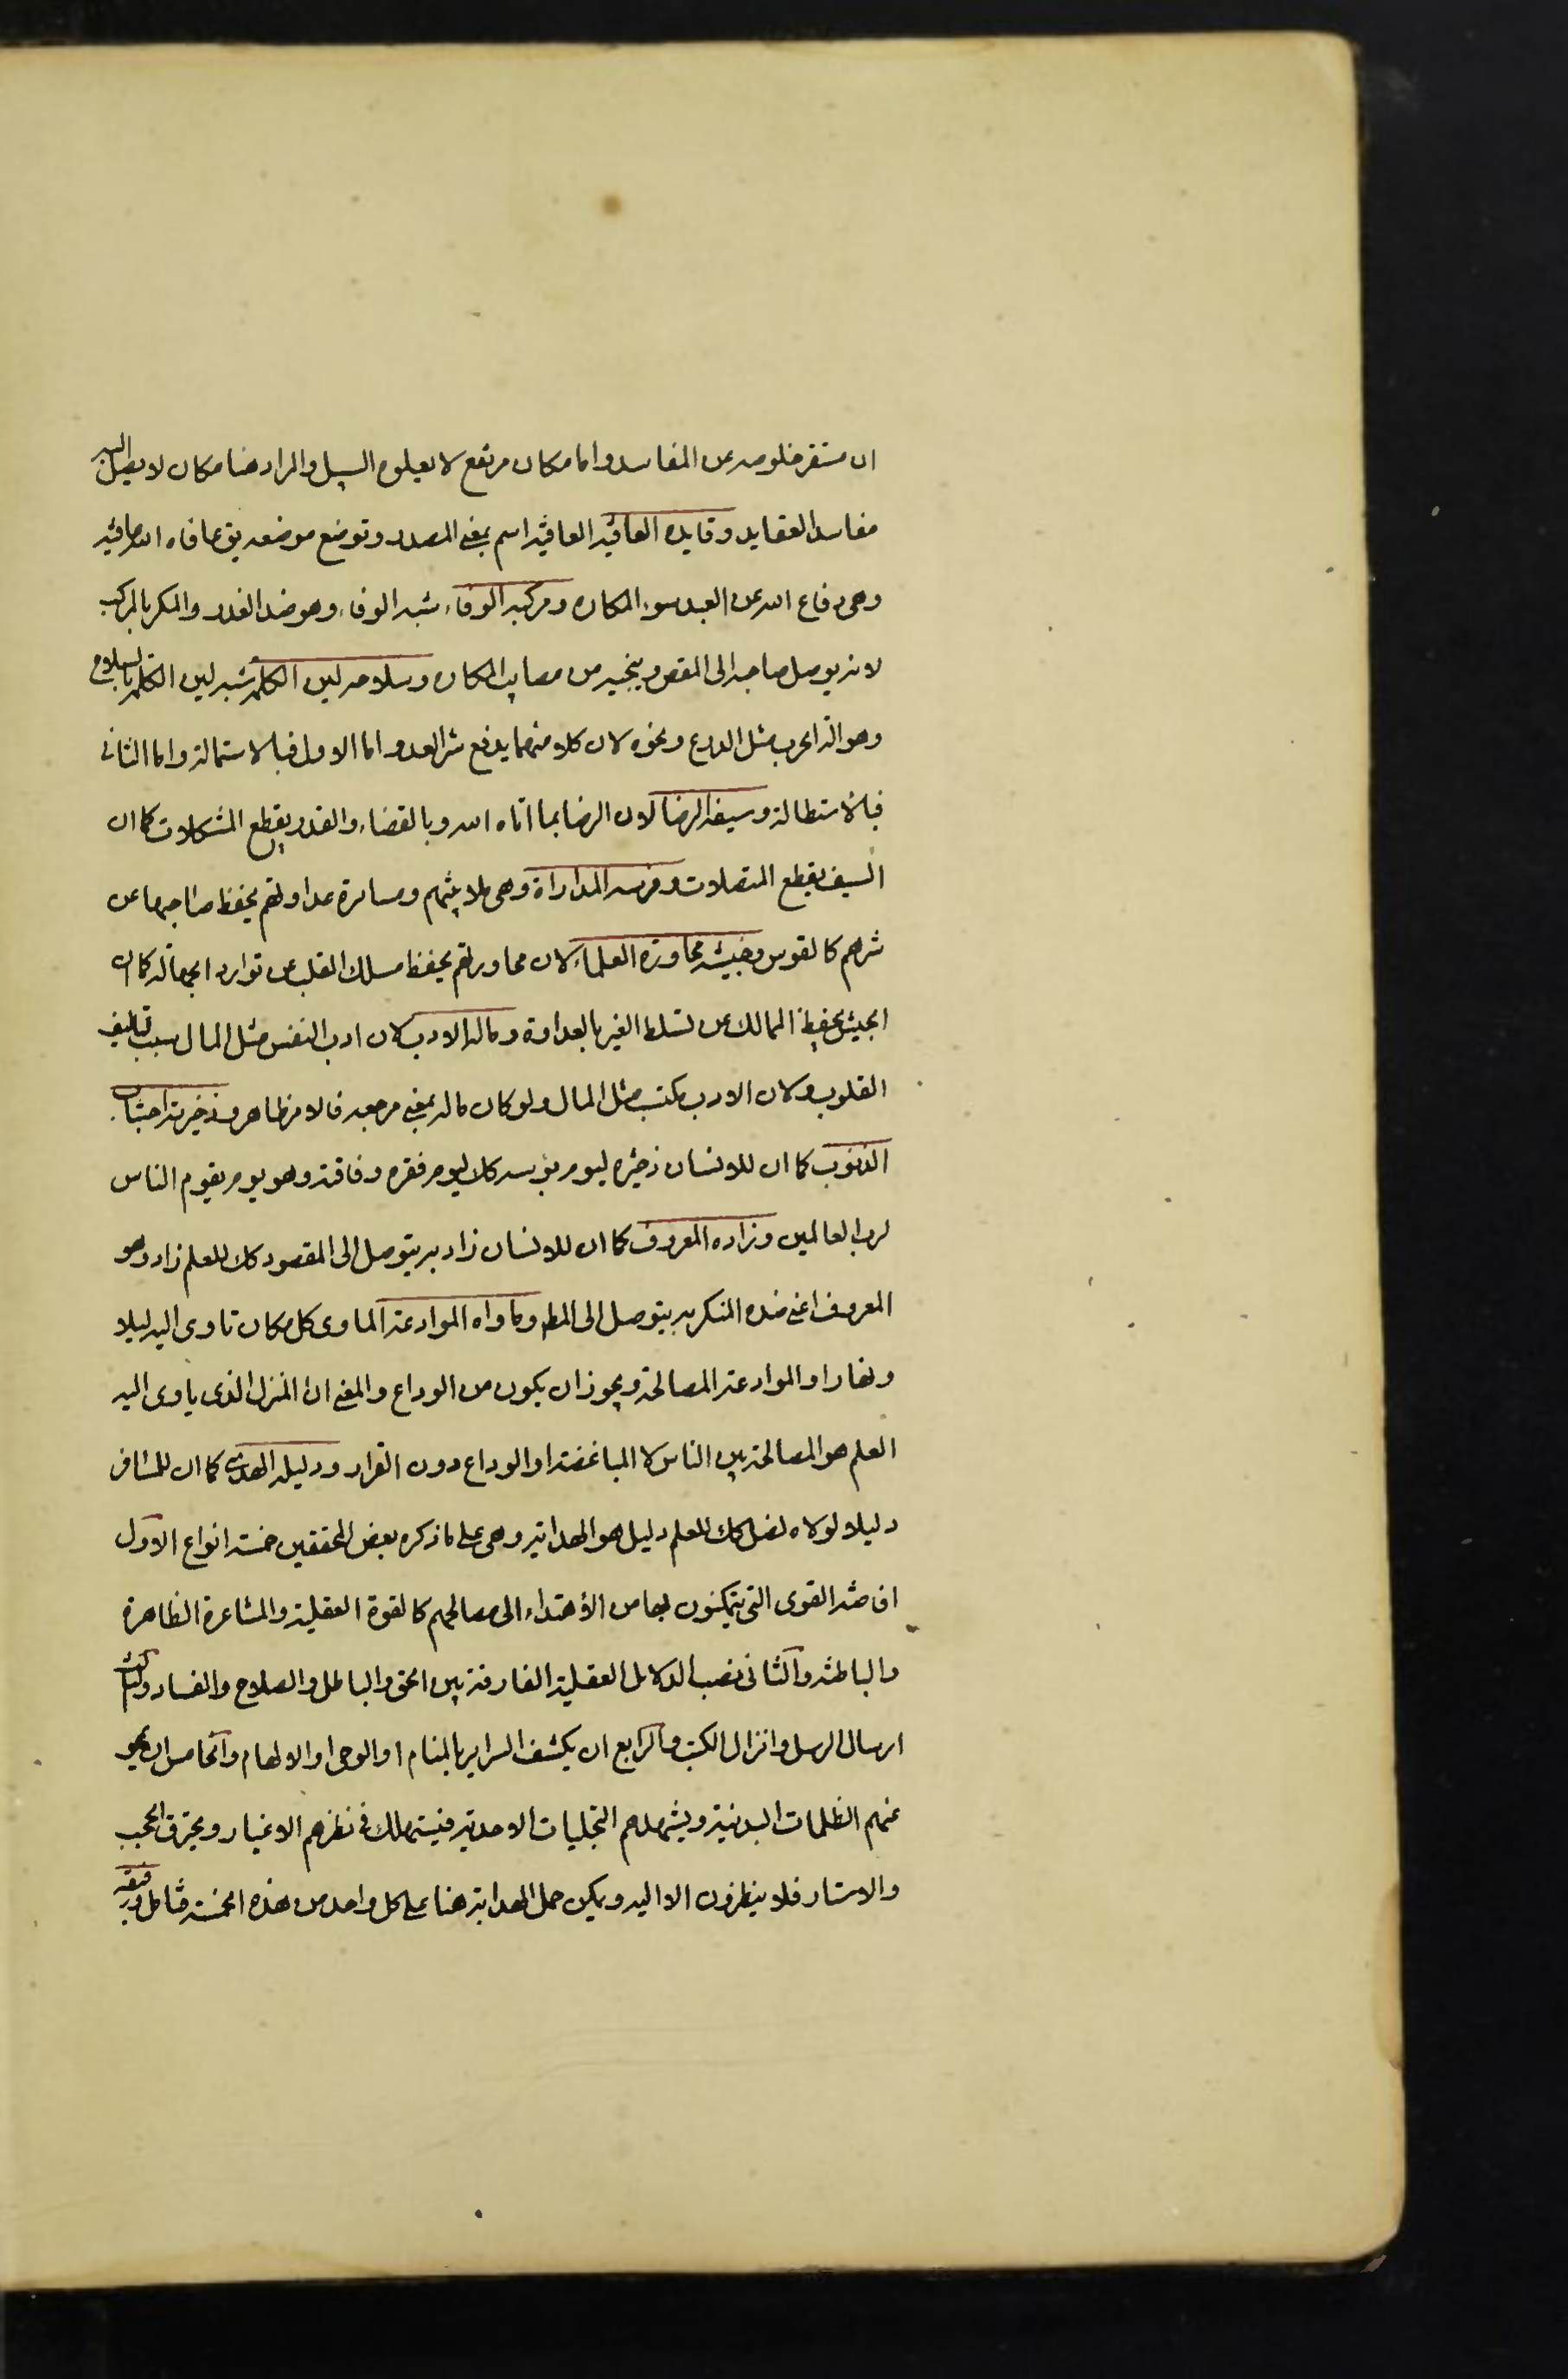 ان مستقر خلومه عن المفاسد واما مكان مرتفع لا يعلوه السيل والمراد هنا مكان لا يصل اليه
مفاسد العقايد وقايده العافية العافية اسم بمعنى المصدر وتوضع موضعه يق عافاه الله عافية
وهى دفاع الله عن العبد سوء المكاره ومركبه الوفاء شبه الوفاء وهو ضد الغدر والمكر بالمركب
لانه يوصل صاحبه الى المقص وينجيه من مصايب المكاره وسلاحه لين الكلمة شبه لين الكلمة بالسلاح
وهو الة الحرب مثل الدرع ونحوه لان كلا منهما يدفع شر العدو اما الاول فبالاستمالة واما الثانى
فبالاستطالة وسيفه الرضا لان الرضا بما اتاه الله وبالقضاء والقدر يقطع المشكلات كما ان
السيف يقطع المتصلات وقوسه المداراة وهى ملايمتهم ومساترة عداوتهم يحفظ صاحبها عن
شرهم كالقوس وجيشه محاورة العلماء لان محاورتهم يحفظ مسلك القلب عن توارد الجهالة كما ان
الجيش يحفظ الممالك عن تسلط الغير بالعداوة وماله الادب لان ادب النفس مثل المال سبب تاليف
القلوب ولان الادب يكتسب مثل المال ولو كان ماله بمعنى مرجعه فالامر ظاهر وذخيرته اجتناب
الذنوب كما ان للانسان ذخيره ليوم بؤسه كك ليوم فقره وفاقته وهو يوم يقوم الناس
لرب العالمين وزاده المعروف كما ان للانسان زاد به يتوصل الى المقصود كك للعلم زاد وهو
المعروف اعنى ضده المنكر به يتوصل الى المط وماواه الموادعة الماوى كل مكان تاوى اليه ليلا
ونهارا والموادعة المصالحة ويجوز ان يكون من الوداع والمعنى ان المنزل الذى ياوى اليه
العلم هو المصالحة بين الناس لا المباغضة او الوداع دون القرار ودليله الهدى كما ان للمسافر
دليلا لولاه لضل كك للعلم دليل هو الهداية وهى على ما ذكره بعض المحققين خمسة انواع الاول
افاضة القوى التى يتمكنون بها من الاهتداء الى مصالحهم كالقوة العقلية والمشاعرة الظاهرة
والباطنة والثانى نصب الدلائل العقلية الفارقة بين الحق والباطل والصلاح والفساد والثالث
ارسال الرسل وانزال الكتب والرابع ان يكشف السراير بالمنام او الوحى او الالهام والخامس ان يمحو
عنهم الظلمات البدنية ويشهدهم التجليات الاحدية فيستهلك فى نظرهم الاغيار ويحترق الحجب
والاستار فلا ينظرون الا اليه ويمكن حمل الهداية هنا على كل واحد من هذه الخمسة فتامل ورفيقه